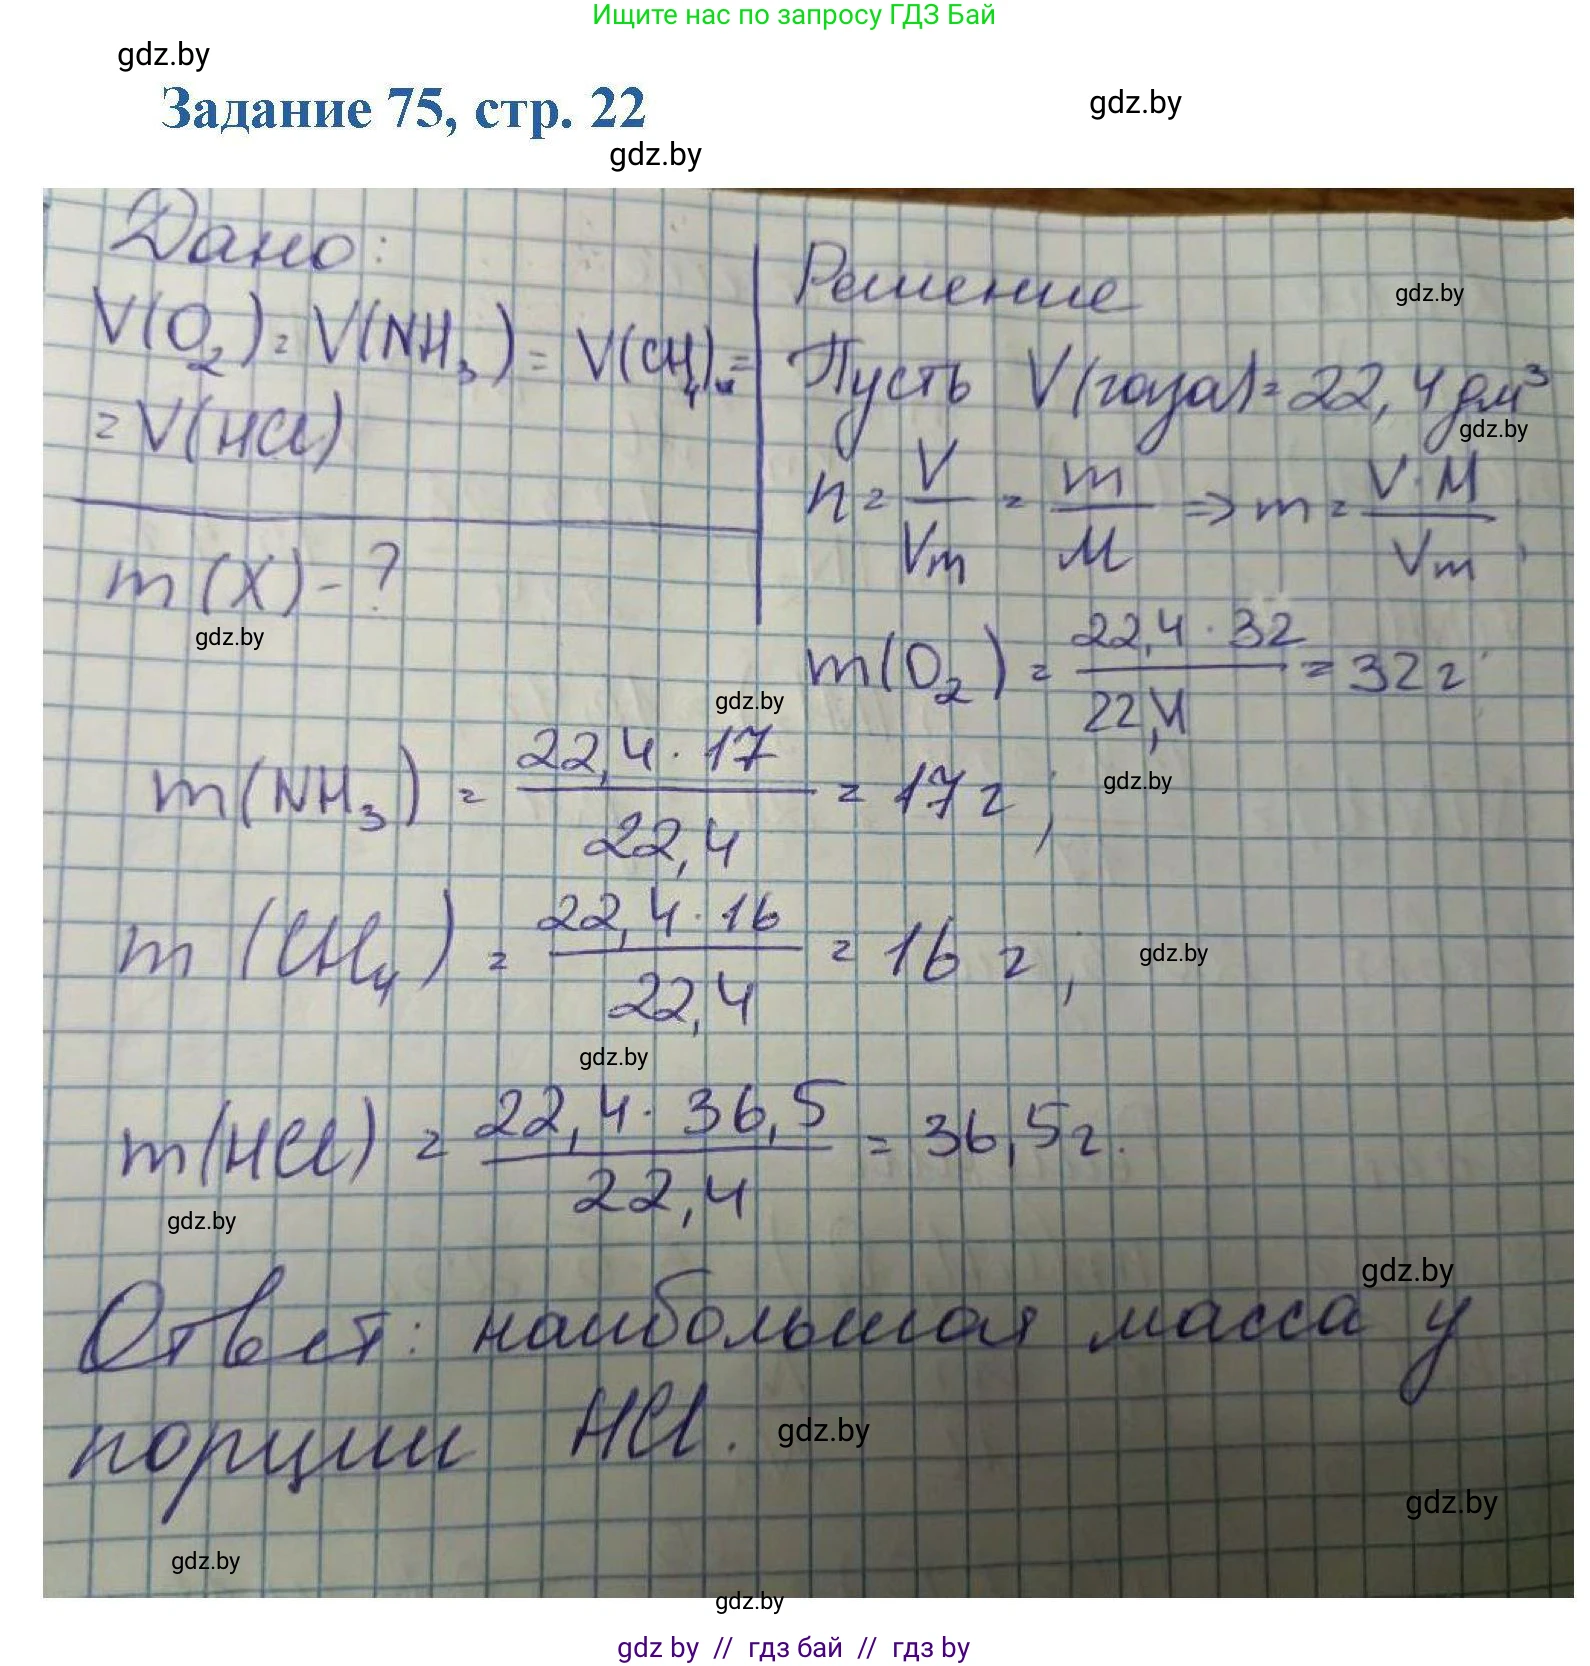 Ищите нас по запросу ГДЗ Бай
gdz.by
Задание 75, стр. 22
gdz.by
gdz.by
Дано:
V(O₂) = V(NH₃) = V(CH₄) =
= V(HCl)
m(X) - ?
gdz.by
Решение
gdz.by
Пусть V(газа) = 22,4 дм³
gdz.by
n = V/Vm = m/M => m = V·M/Vm ;
m(O₂) = 22,4 · 32/22,4 = 32 г ;
gdz.by
gdz.by
m(NH₃) = 22,4 · 17/22,4 = 17 г ;
m(CH₄) = 22,4 · 16/22,4 = 16 г ;
gdz.by
gdz.by
m(HCl) = 22,4 · 36,5/22,4 = 36,5 г.
gdz.by
gdz.by
Ответ: наибольшая масса у
порции HCl.
gdz.by
gdz.by
gdz.by
gdz.by
gdz by // гдз бай // гдз by